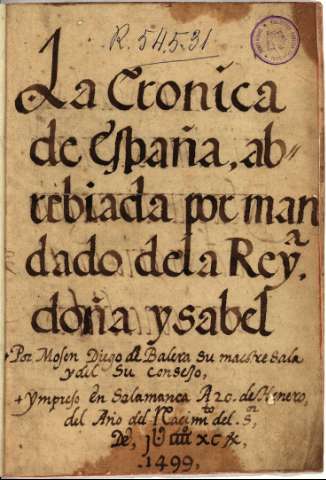 R. 54.531
La Cronica
de España, ab=
rebiada por man
dado de la Reyᵃ.
doña ysabel
+ Por Mosen Diego de Balera su maestresala
y del Su Consejo,
+ Ympreso en Salamanca A 20. de Henero,
del Año del Nacimᵗᵒ del. S.ᵒʳ
De,
.1499,